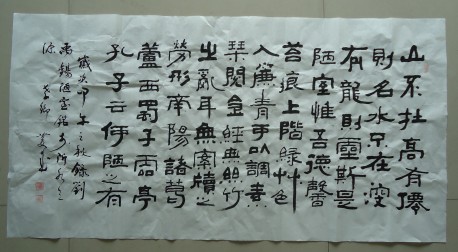 山不在高有僊
則名水不在深
有龍則靈斯是
陋室惟吾德馨
苔痕上階綠草色
入簾青可以調素
琴閱金經無絲竹
之亂耳無案牘之
勞形南陽諸葛
廬西蜀子雲亭
孔子云何陋之有
歲次甲午之秋錄劉
禹錫陋室銘於
源